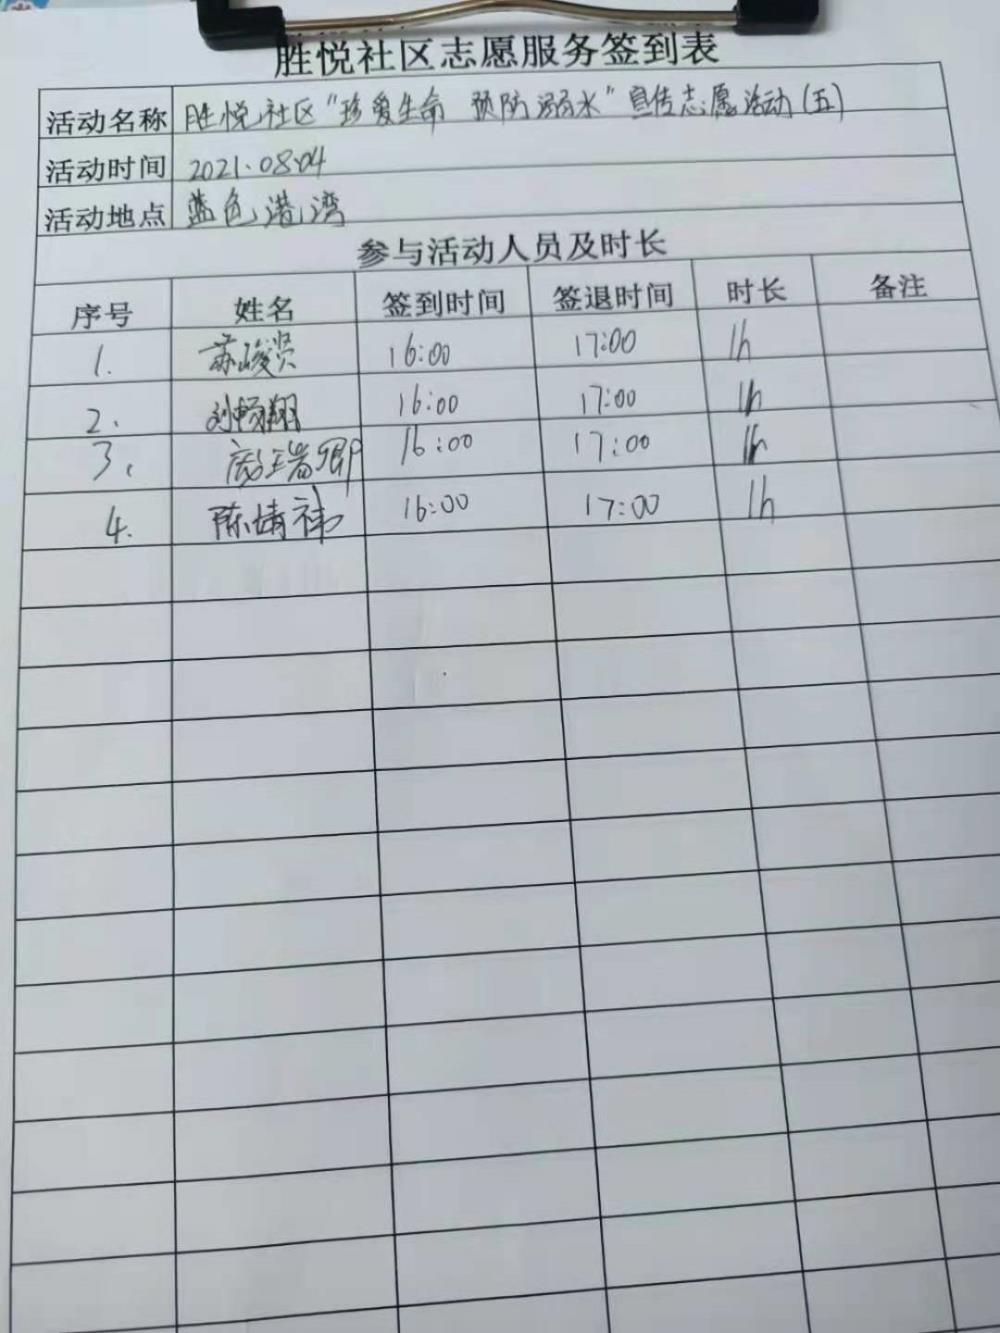 胜悦社区志愿服务签到表
活动名称 胜悦社区“珍爱生命 预防溺水”宣传志愿活动(五)
活动时间 2021.08.04
活动地点 蓝色港湾
参与活动人员及时长
序号 姓名 签到时间 签退时间 时长 备注
1. 苏峻贤 16:00 17:00 1h
2. 刘畅翔 16:00 17:00 1h
3. 16:00 17:00 1h
4. 陈婧祎 16:00 17:00 1h